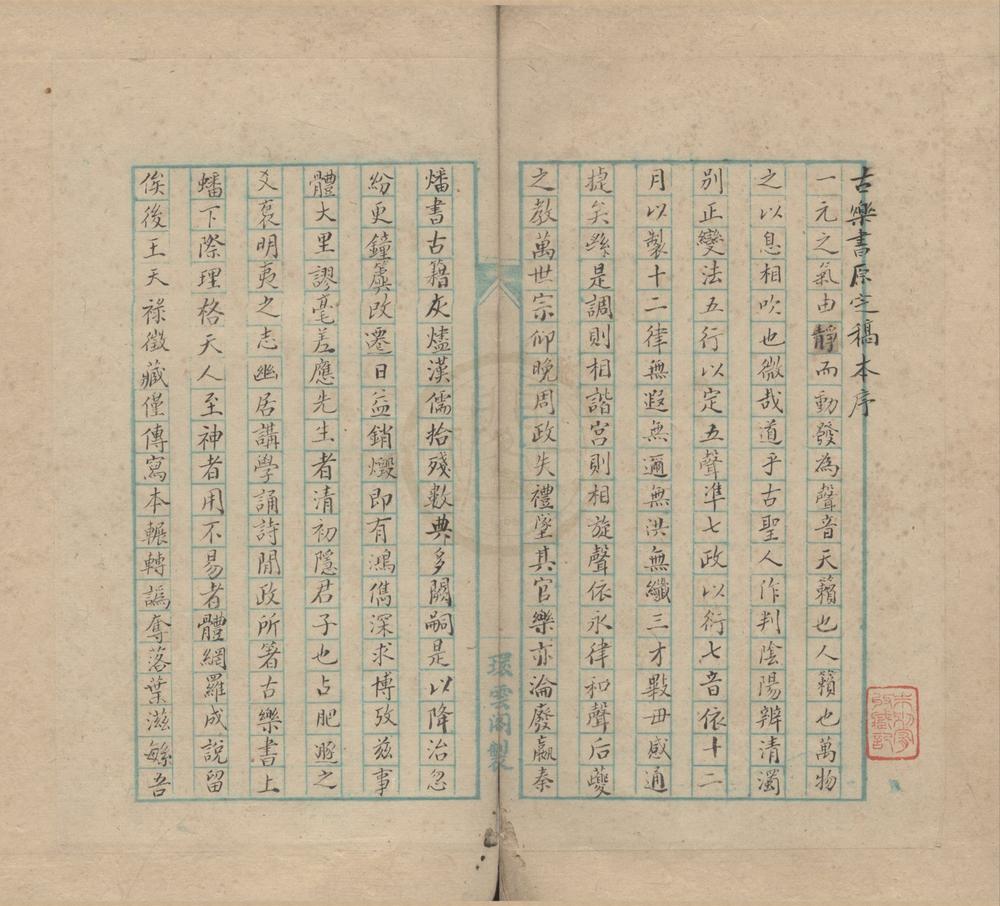 古樂書原定稿本序
一元之氣由靜而動發為聲音天籟也人籟也萬物
之以息相吹也微哉道乎古聖人作判陰陽辨清濁
別正變法五行以定五聲準七政以衍七音依十二
月以製十二律無遐無邇無洪無纖三才數毌感通
捷矣繇是調則相諧宮則相旋聲依永律和聲后夔
之教萬世宗仰晚周政失禮墜其官樂亦淪廢嬴秦
燔書古籍灰燼漢儒拾殘數典多闕嗣是以降治忽
紛更鐘簴改遷日益銷燬即有鴻儁深求博攷茲事
體大里謬毫差應先生者清初隱君子也占肥遯之
爻裒明夷之志幽居講學誦詩閒政所箸古樂書上
蟠下際理格天人至神者用不易者體網羅成說留
俟後王天祿徵藏僅傳寫本輾轉譌奪落葉滋繇吾
環雲閣製